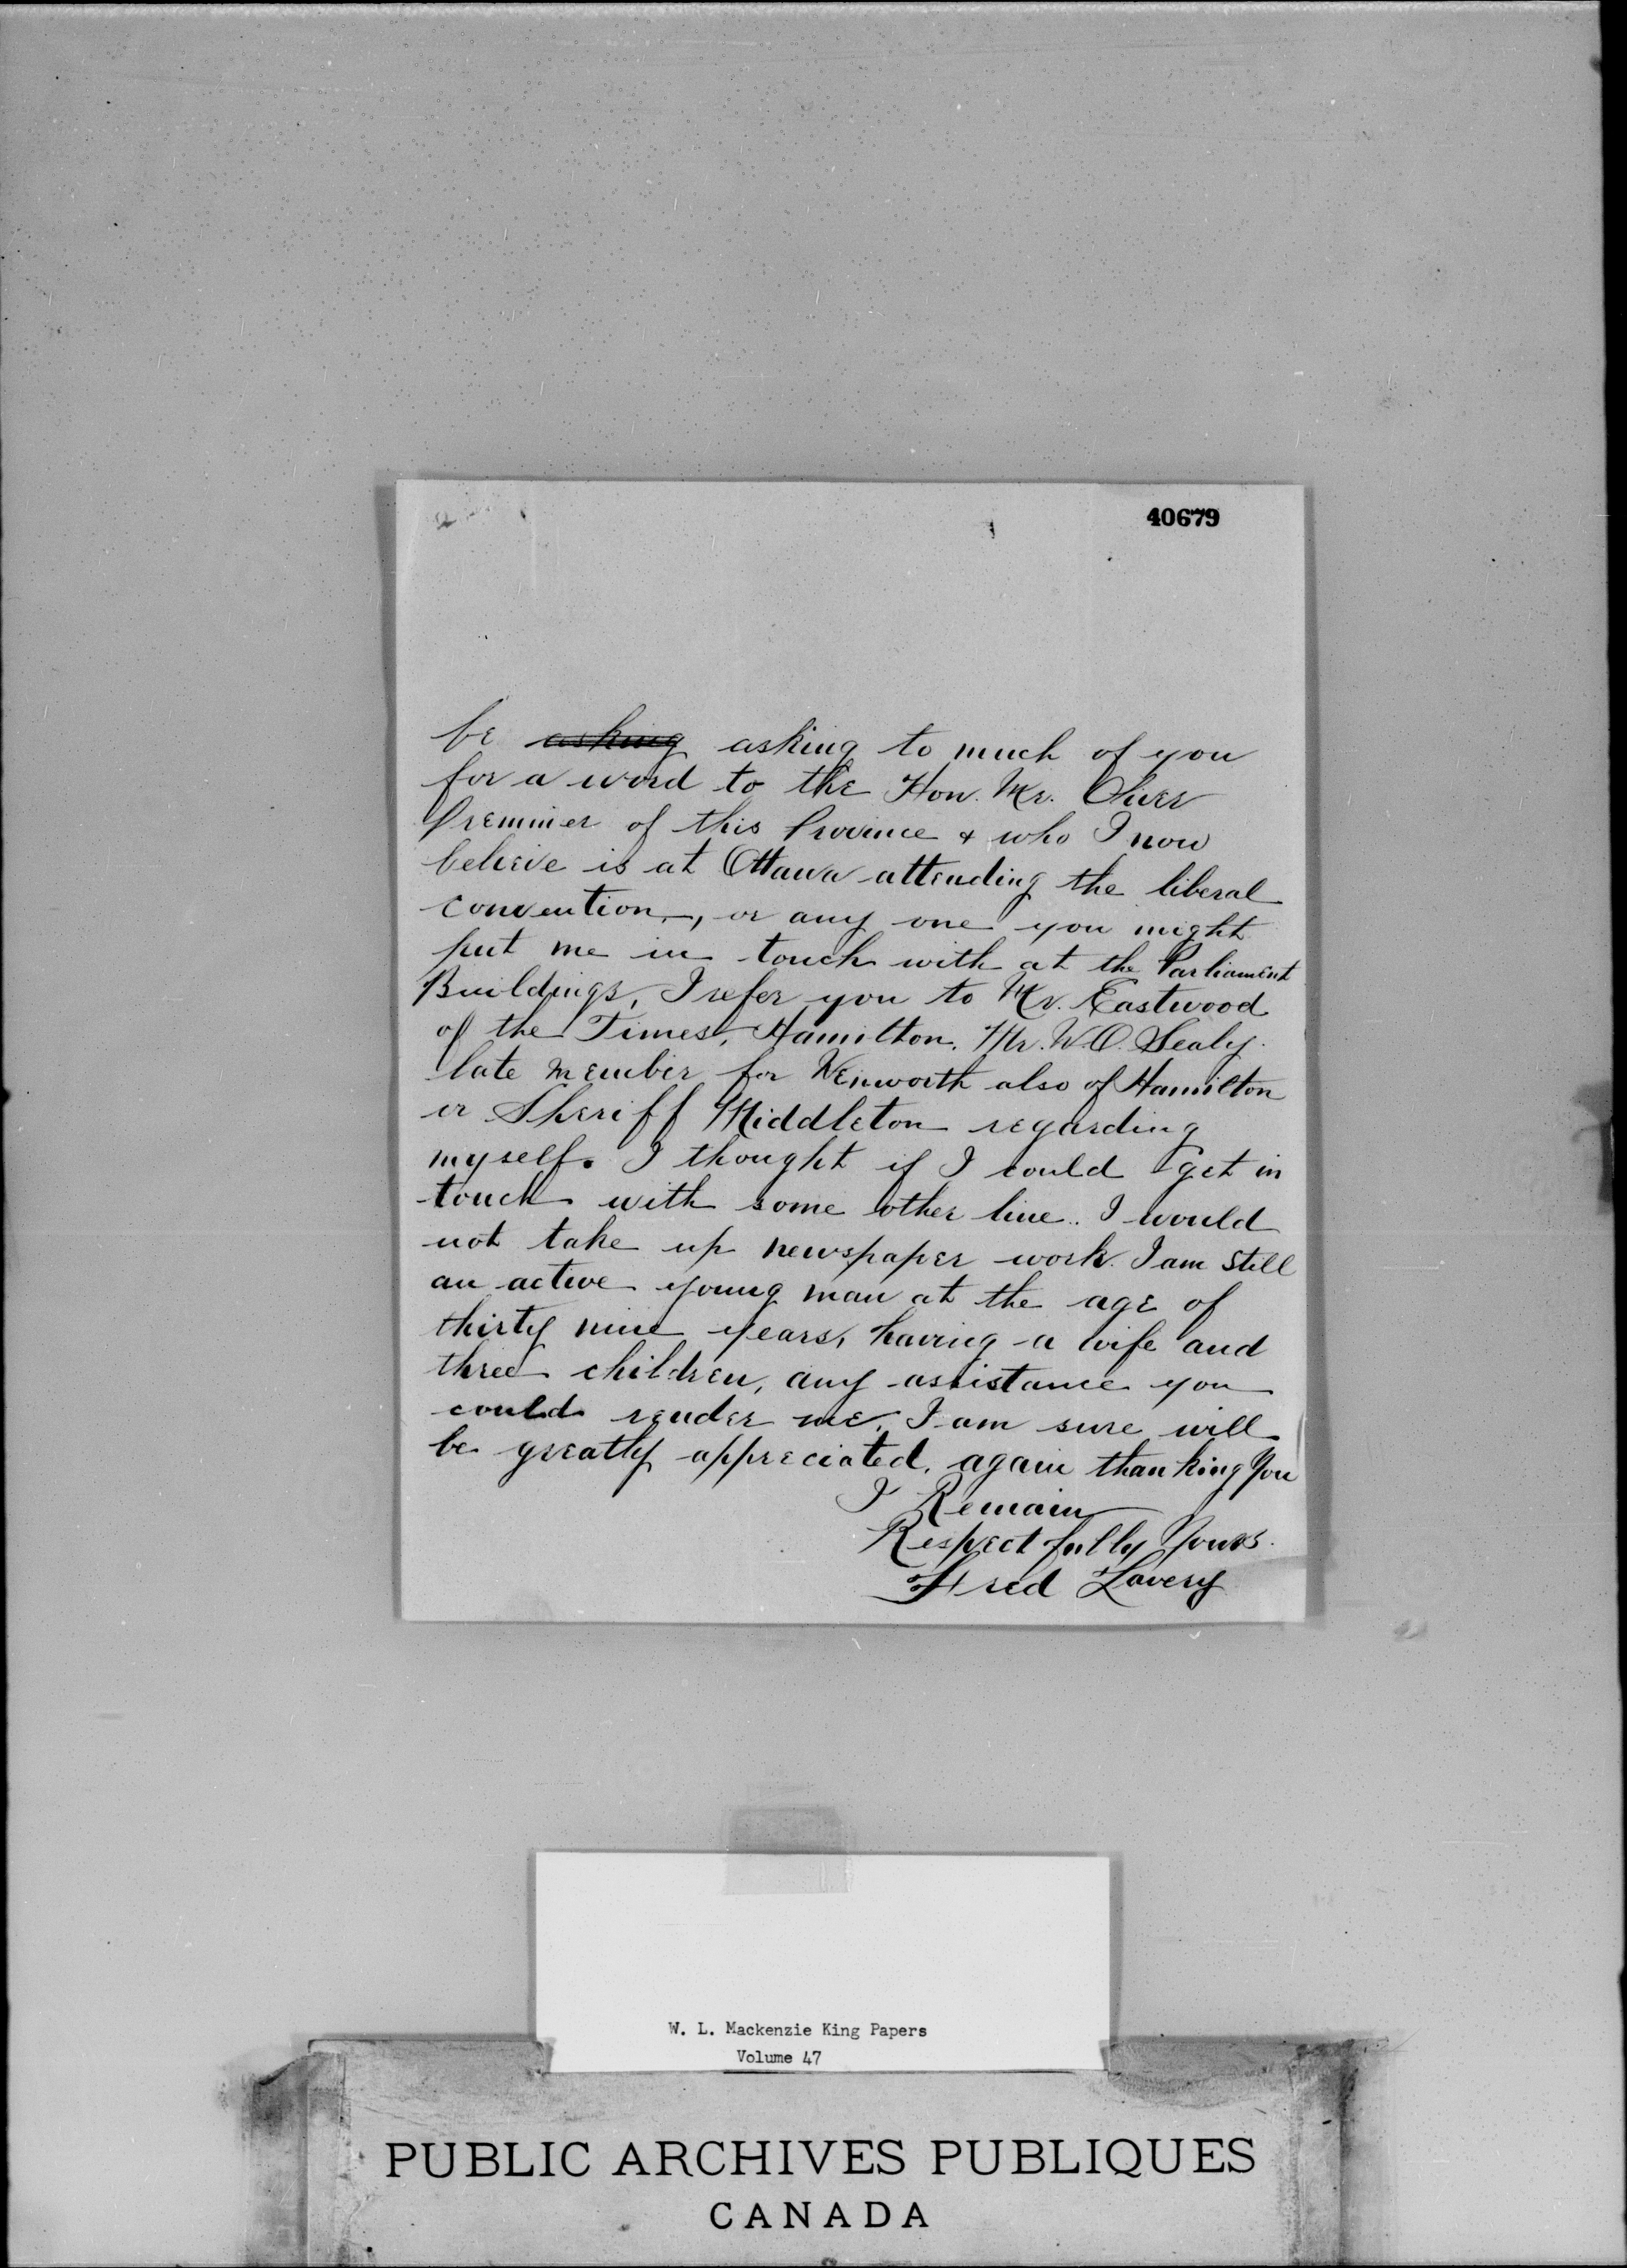 40679
be asking asking to much of you
for a word to the Hon. Mr. Oliver
Premiier of this Province & who I now
believe is at Ottawa attending the liberal
convention, or any one you might
put me in touch with at the Parliament
Buildings, I refer you to Mr. Eastwood
of the Times, Hamilton. Mr. W.O. Sealy.
late member for Wenworth also of Hamilton
or Sheriff Middleton regarding
myself. I thought if I could get in
touch with some other line.. I would
not take up newspaper work. I am still
an active young man at the age of
thirty nine years, having a wife and
three children, any assistance you
could render me, I am sure will
be greatly appreciated, again thanking you
I Remain
Respectfully Yours.
Fred Lavery
W. L. Mackenzie King Papers
Volume 47
PUBLIC ARCHIVES PUBLIQUES
CANADA